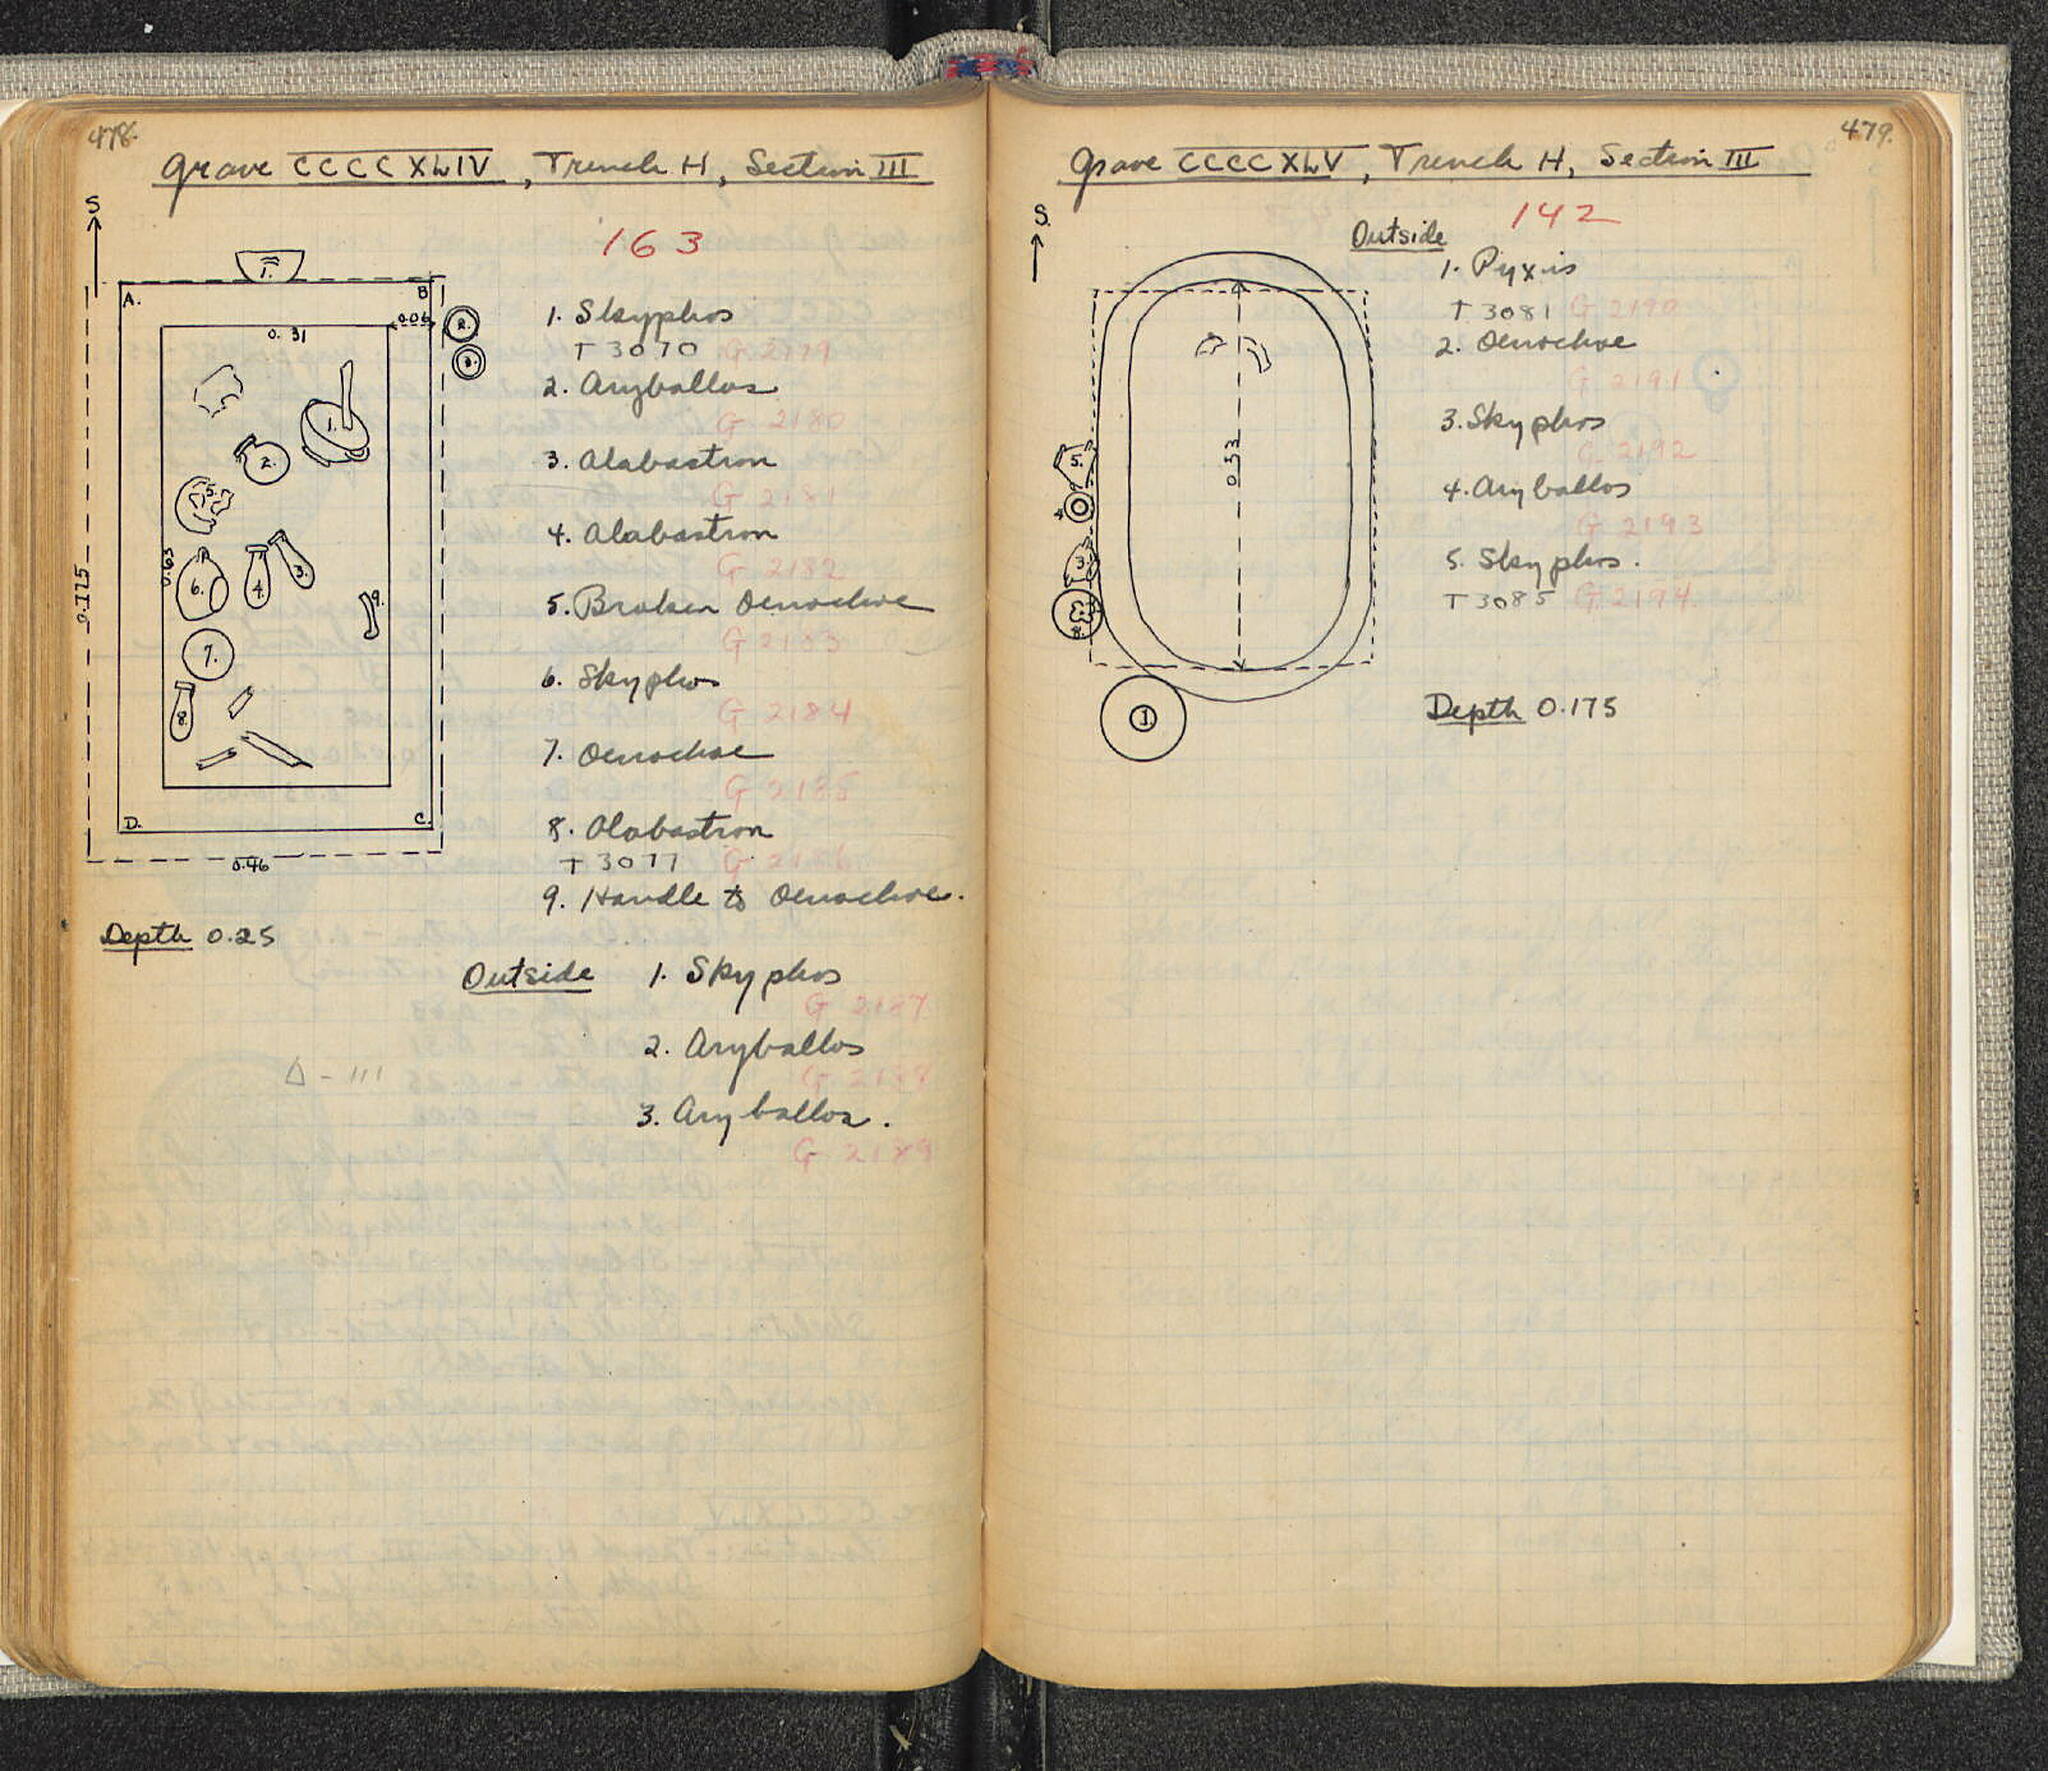 478.
Grave CCCCXLIV, Trench H, Section III
S
163
1.
A.
B
0.06
2.
3.
0.31
1.
2.
5.
6.
4.
3.
9.
7.
8.
0.775
0.63
D.
C.
0.46
Depth 0.25
1. Skyphos
T 3070 G 2179
2. Aryballos
G 2180
3. Alabastron
G 2181
4. Alabastron
G 2182
5. Broken Oenochoe
G 2183
6. Skyphos
G 2184
7. Oenochoe
G 2185
8. Alabastron
T 3077 G 2186
9. Handle to Oenochoe.
Outside 1. Skyphos
G 2187
2. Aryballos
G 2188
Δ - 111
3. Aryballos.
G 2189
479.
Grave CCCCXLV, Trench H, Section III
S.
142
Outside
1. Pyxis
T 3081 G 2190
2. Oenochoe
G 2191
3. Skyphos
G 2192
4. Aryballos
G 2193
5. Skyphos.
T 3085 G 2194
0.53
5.
4.
3.
2.
1.
Depth 0.175